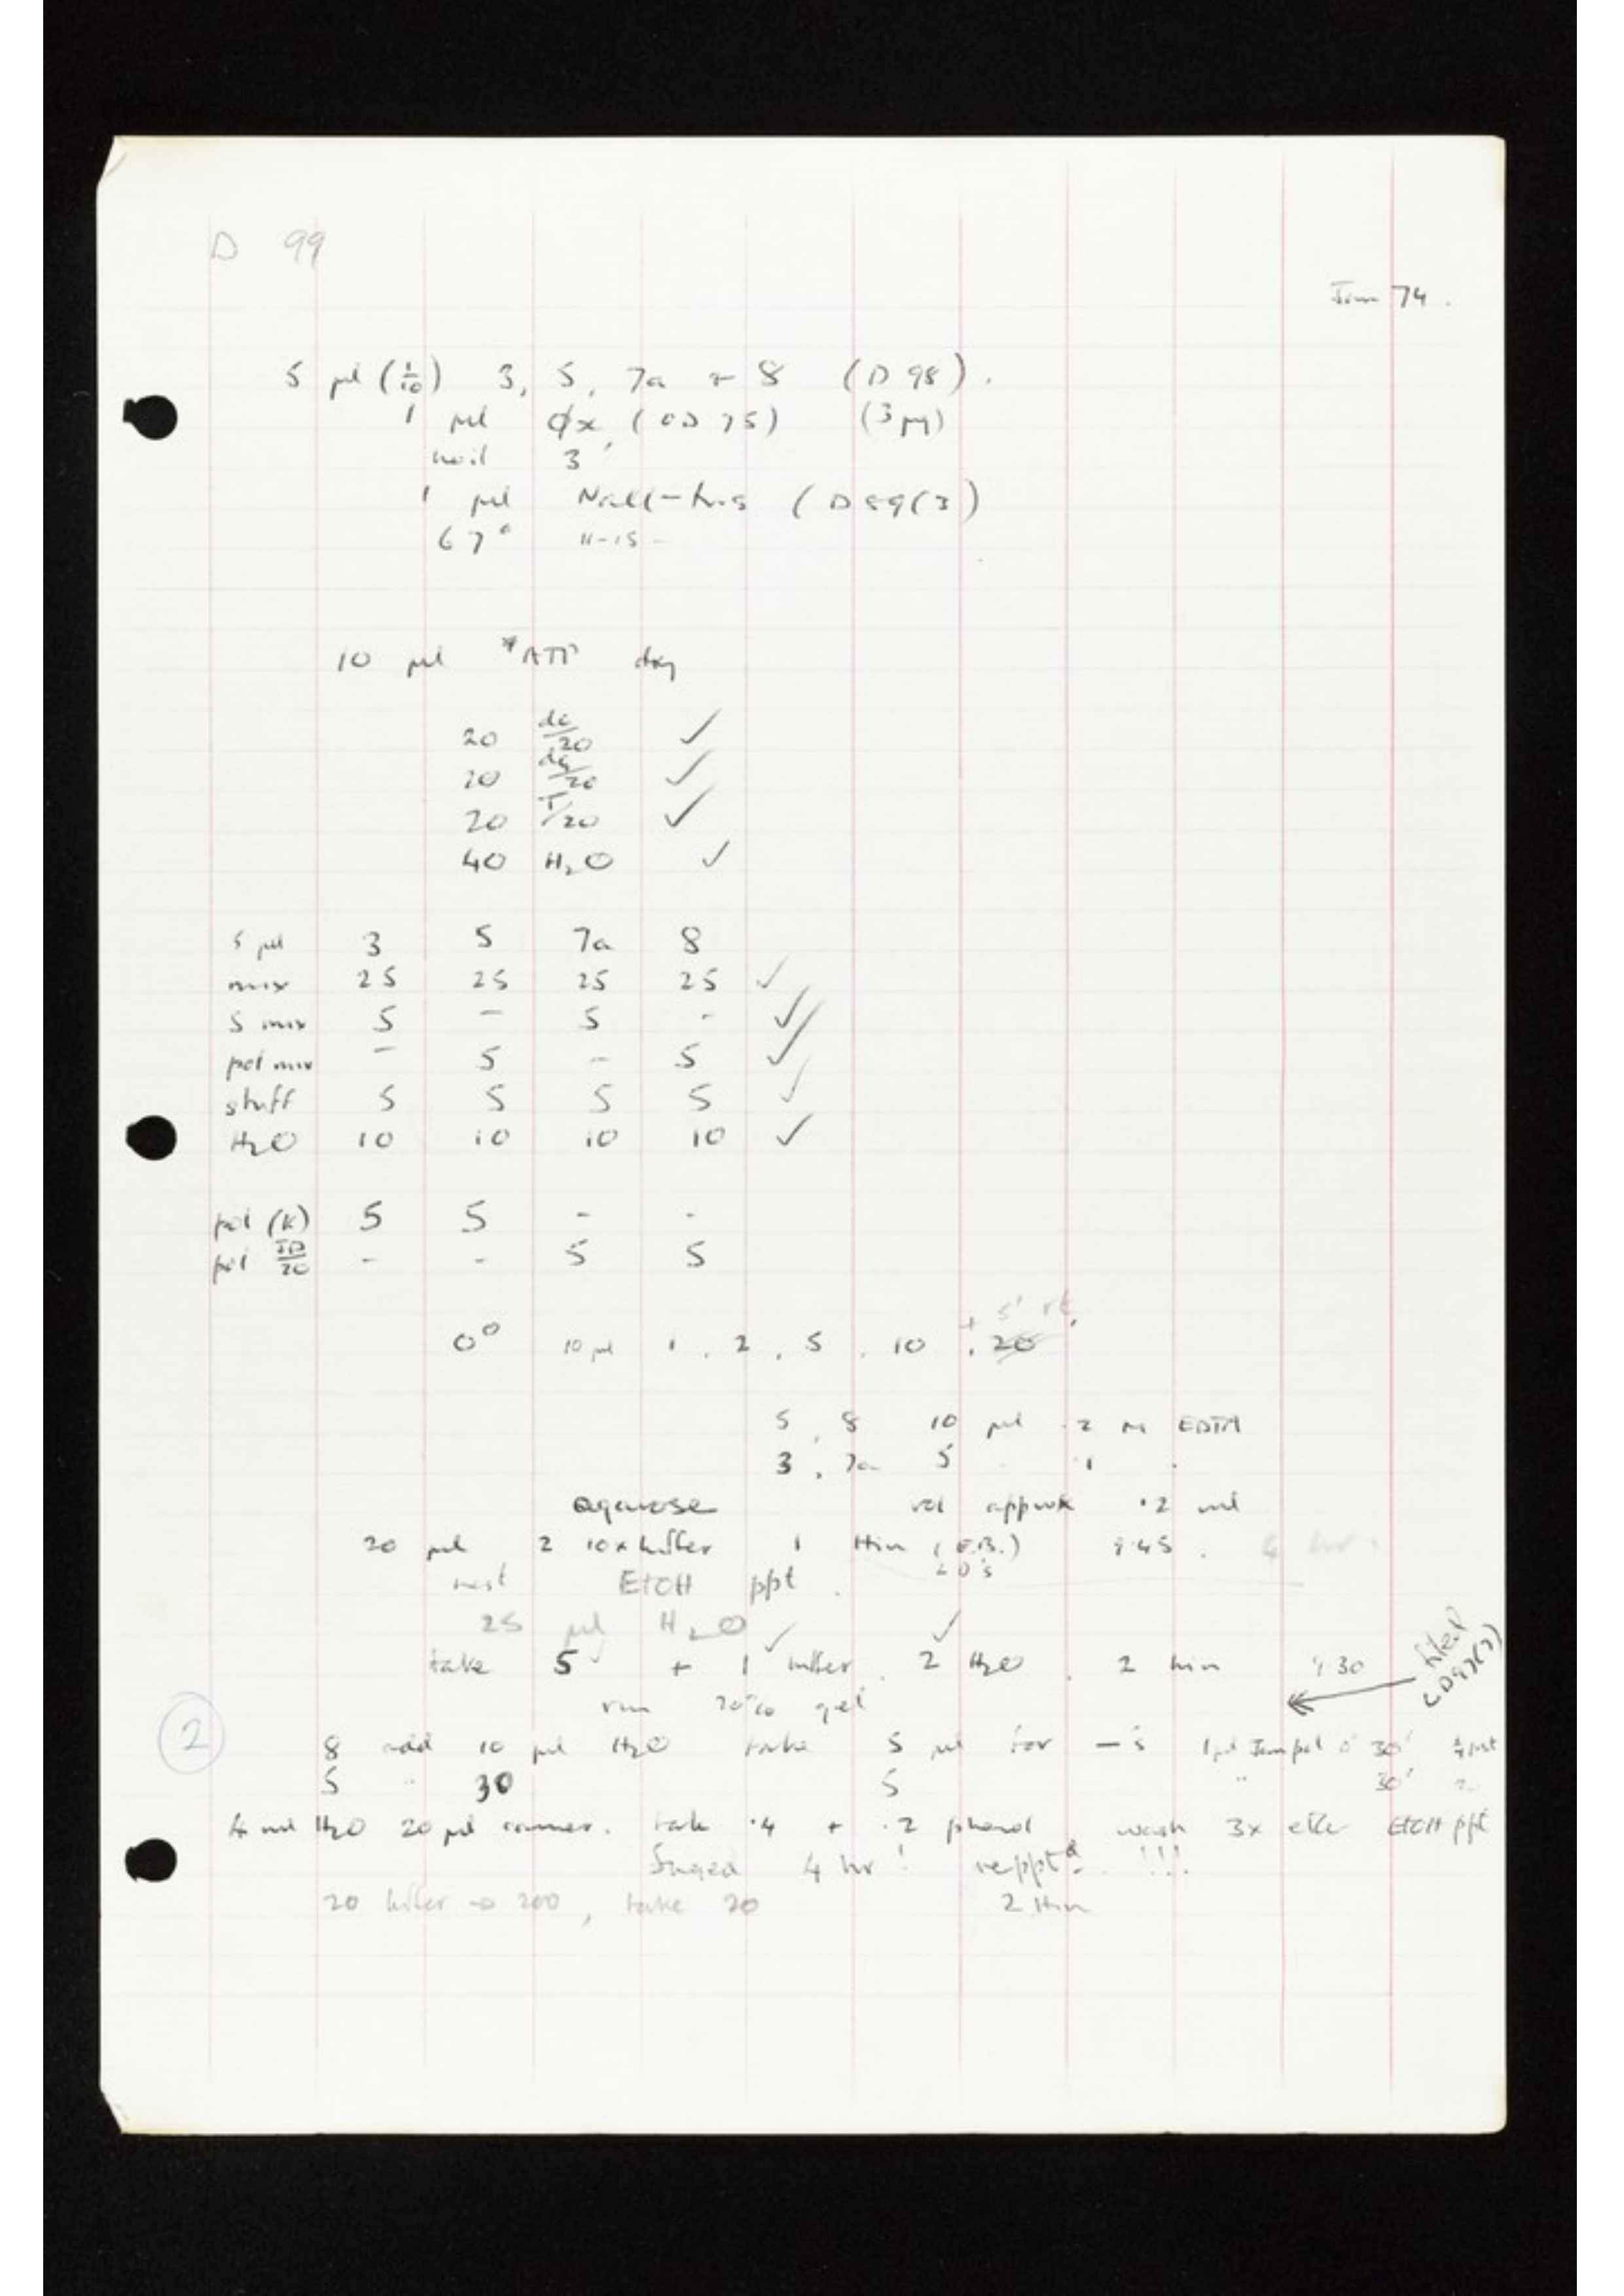 D 99
74.
5 µl (1/10) 3, 5, 7a + 8 (D 98).
1 µl ϕx (OD 75) (3 µg)
3'
1 µl (D89(3)
67° 11-15 -
10 µl *ATP dry
20 dc/20 ✓
20 dg/20 ✓
20 T/20 ✓
40 H2O ✓
5 µl 3 5 7a 8
mix 25 25 25 25 ✓
5 mix 5 - 5 - ✓
pol mix - 5 - 5 ✓
stuff 5 5 5 5 ✓
H2O 10 10 10 10 ✓
pol (K) 5 5 - -
pol 20 - - 5 5
+ 5' rt.
0° 10 µl 1, 2, 5, 10, 20
5, 8 10 µl ·2 M EDTA
3, 7a 5 ·1
agarose vol approx ·2 ml
20 µl 2 10x buffer 1 Hin (E.B.) 4 hr.
rest EtOH ppt.
25 µl H2O
take 5 ✓ + 1 ✓ buffer, 2 ✓ H2O, 2 hin 9 30
run gel
2
8 add 10 µl H2O take 5 µl for -s 1 µl pol 0° 30'
5 " 30 5 " 30'
4 ml H2O 20 µl take ·4 + ·2 phenol wash 3x ether EtOH ppt
4 hr! reppt^d !!!
20 buffer → 200, take 20 2 Hin